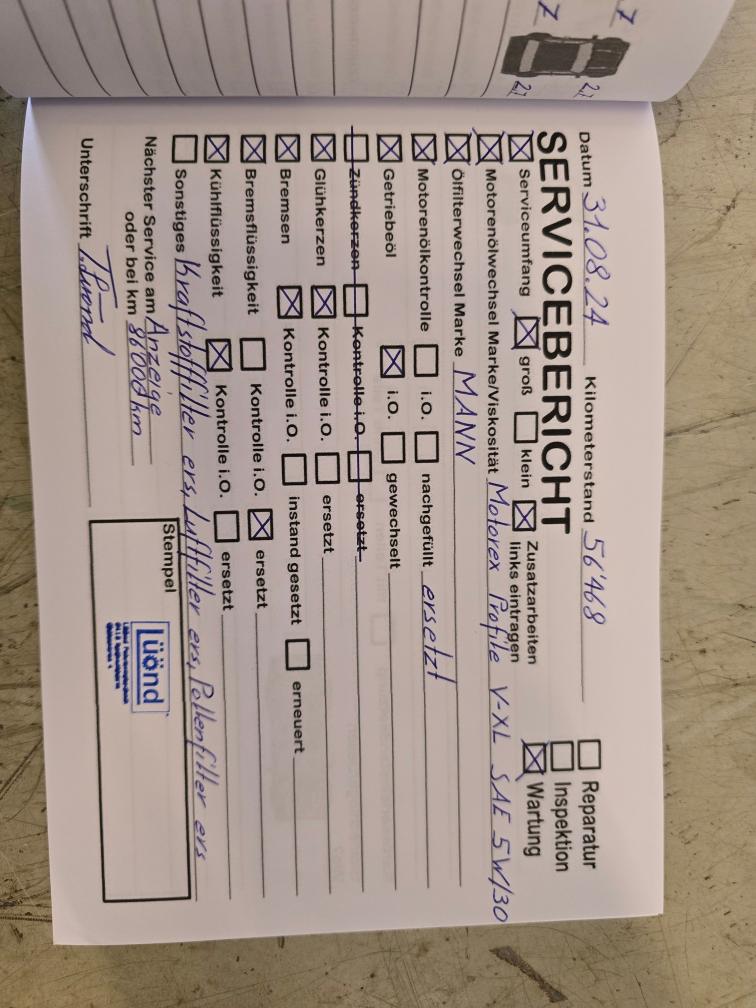 Datum 31.08.24 Kilometerstand 56'468
Reparatur
Inspektion
Wartung
SERVICEBERICHT
Serviceumfang groß klein Zusatzarbeiten links eintragen
Motorenölwechsel Marke/Viskosität Motorex Profile V-XL SAE 5W/30
Ölfilterwechsel Marke MANN
Motorenölkontrolle i.O. nachgefüllt ersetzt
Getriebeöl i.O. gewechselt
Zündkerzen Kontrolle i.O. ersetzt
Glühkerzen Kontrolle i.O. ersetzt
Bremsen Kontrolle i.O. instand gesetzt erneuert
Bremsflüssigkeit Kontrolle i.O. ersetzt
Kühlflüssigkeit Kontrolle i.O. ersetzt
Sonstiges Kraftstofffilter ers, Luftfilter ers, Pollenfilter ers
Nächster Service am Anzeige
oder bei km 86000 km
Unterschrift
Stempel
Lüönd